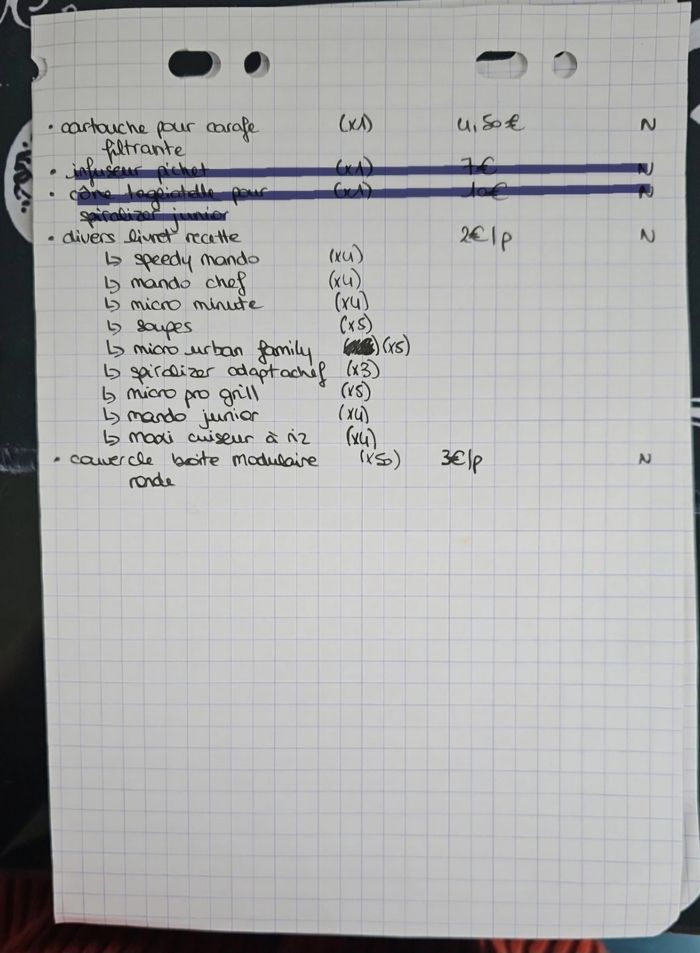 • cartouche pour carafe (x1) 4,50€ N
filtrante
• infuseur pichet (x1) 7€ N
• cône tagliatelle pour (x1) 10€ N
spiralizer junior
• divers livret recette 2€/p N
↳ speedy mando (x4)
↳ mando chef (x4)
↳ micro minute (x4)
↳ soupes (x5)
↳ micro urban family (x5)
↳ spiralizer adaptachef (x3)
↳ micro pro grill (x5)
↳ mando junior (x4)
↳ maxi cuiseur à riz (x4)
• couvercle boite modulaire (x50) 3€/p N
ronde